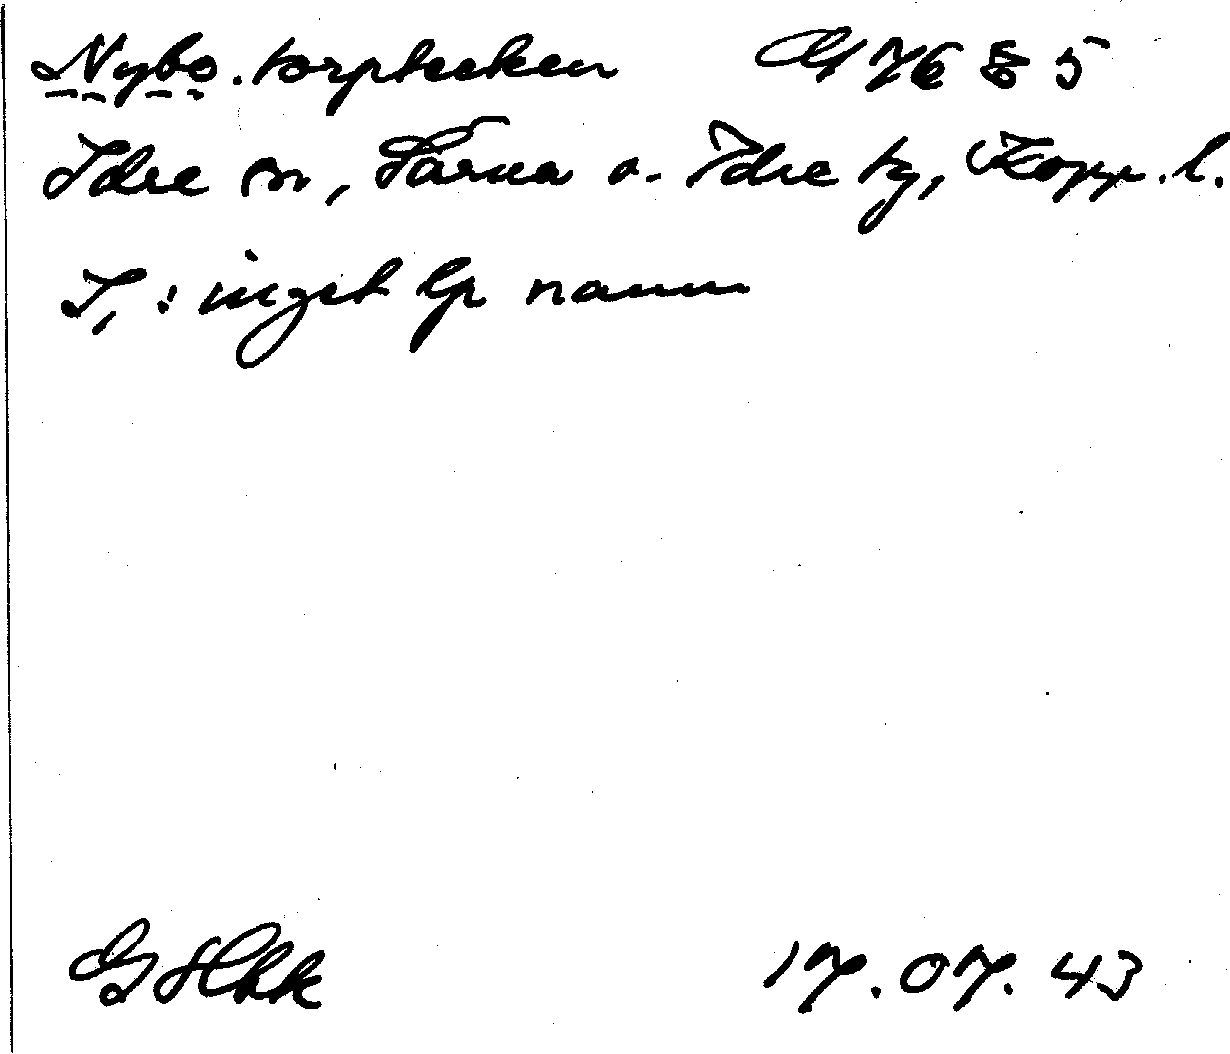 Nybo. torptecken G 76 85
Idre sn, Särna o. Idre tg, Kopp. l.
I, : inget lp namn
17.07.43